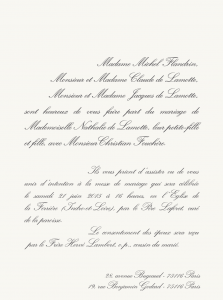 Madame Michel Flandrin,
Monsieur et Madame Claude de Lamotte,
Monsieur et Madame Jacques de Lamotte,
sont heureux de vous faire part du mariage de
Mademoiselle Nathalie de Lamotte, leur petite-fille
et fille, avec Monsieur Christian
Ils vous prient d'assister ou de vous
unir d'intention à la messe de mariage qui sera célébrée
le samedi 21 juin 2013 à 16 heures, en l'Eglise de
la Ferrière (Indre-et-Loire), par le Père Lefort, curé
de la paroisse.
Le consentement des époux sera reçu
par le Frère Hervé Lambert, o.p., cousin du marié.
28, avenue Bugeaud - 75116 Paris
19, rue Benjamin Godard - 75116 Paris